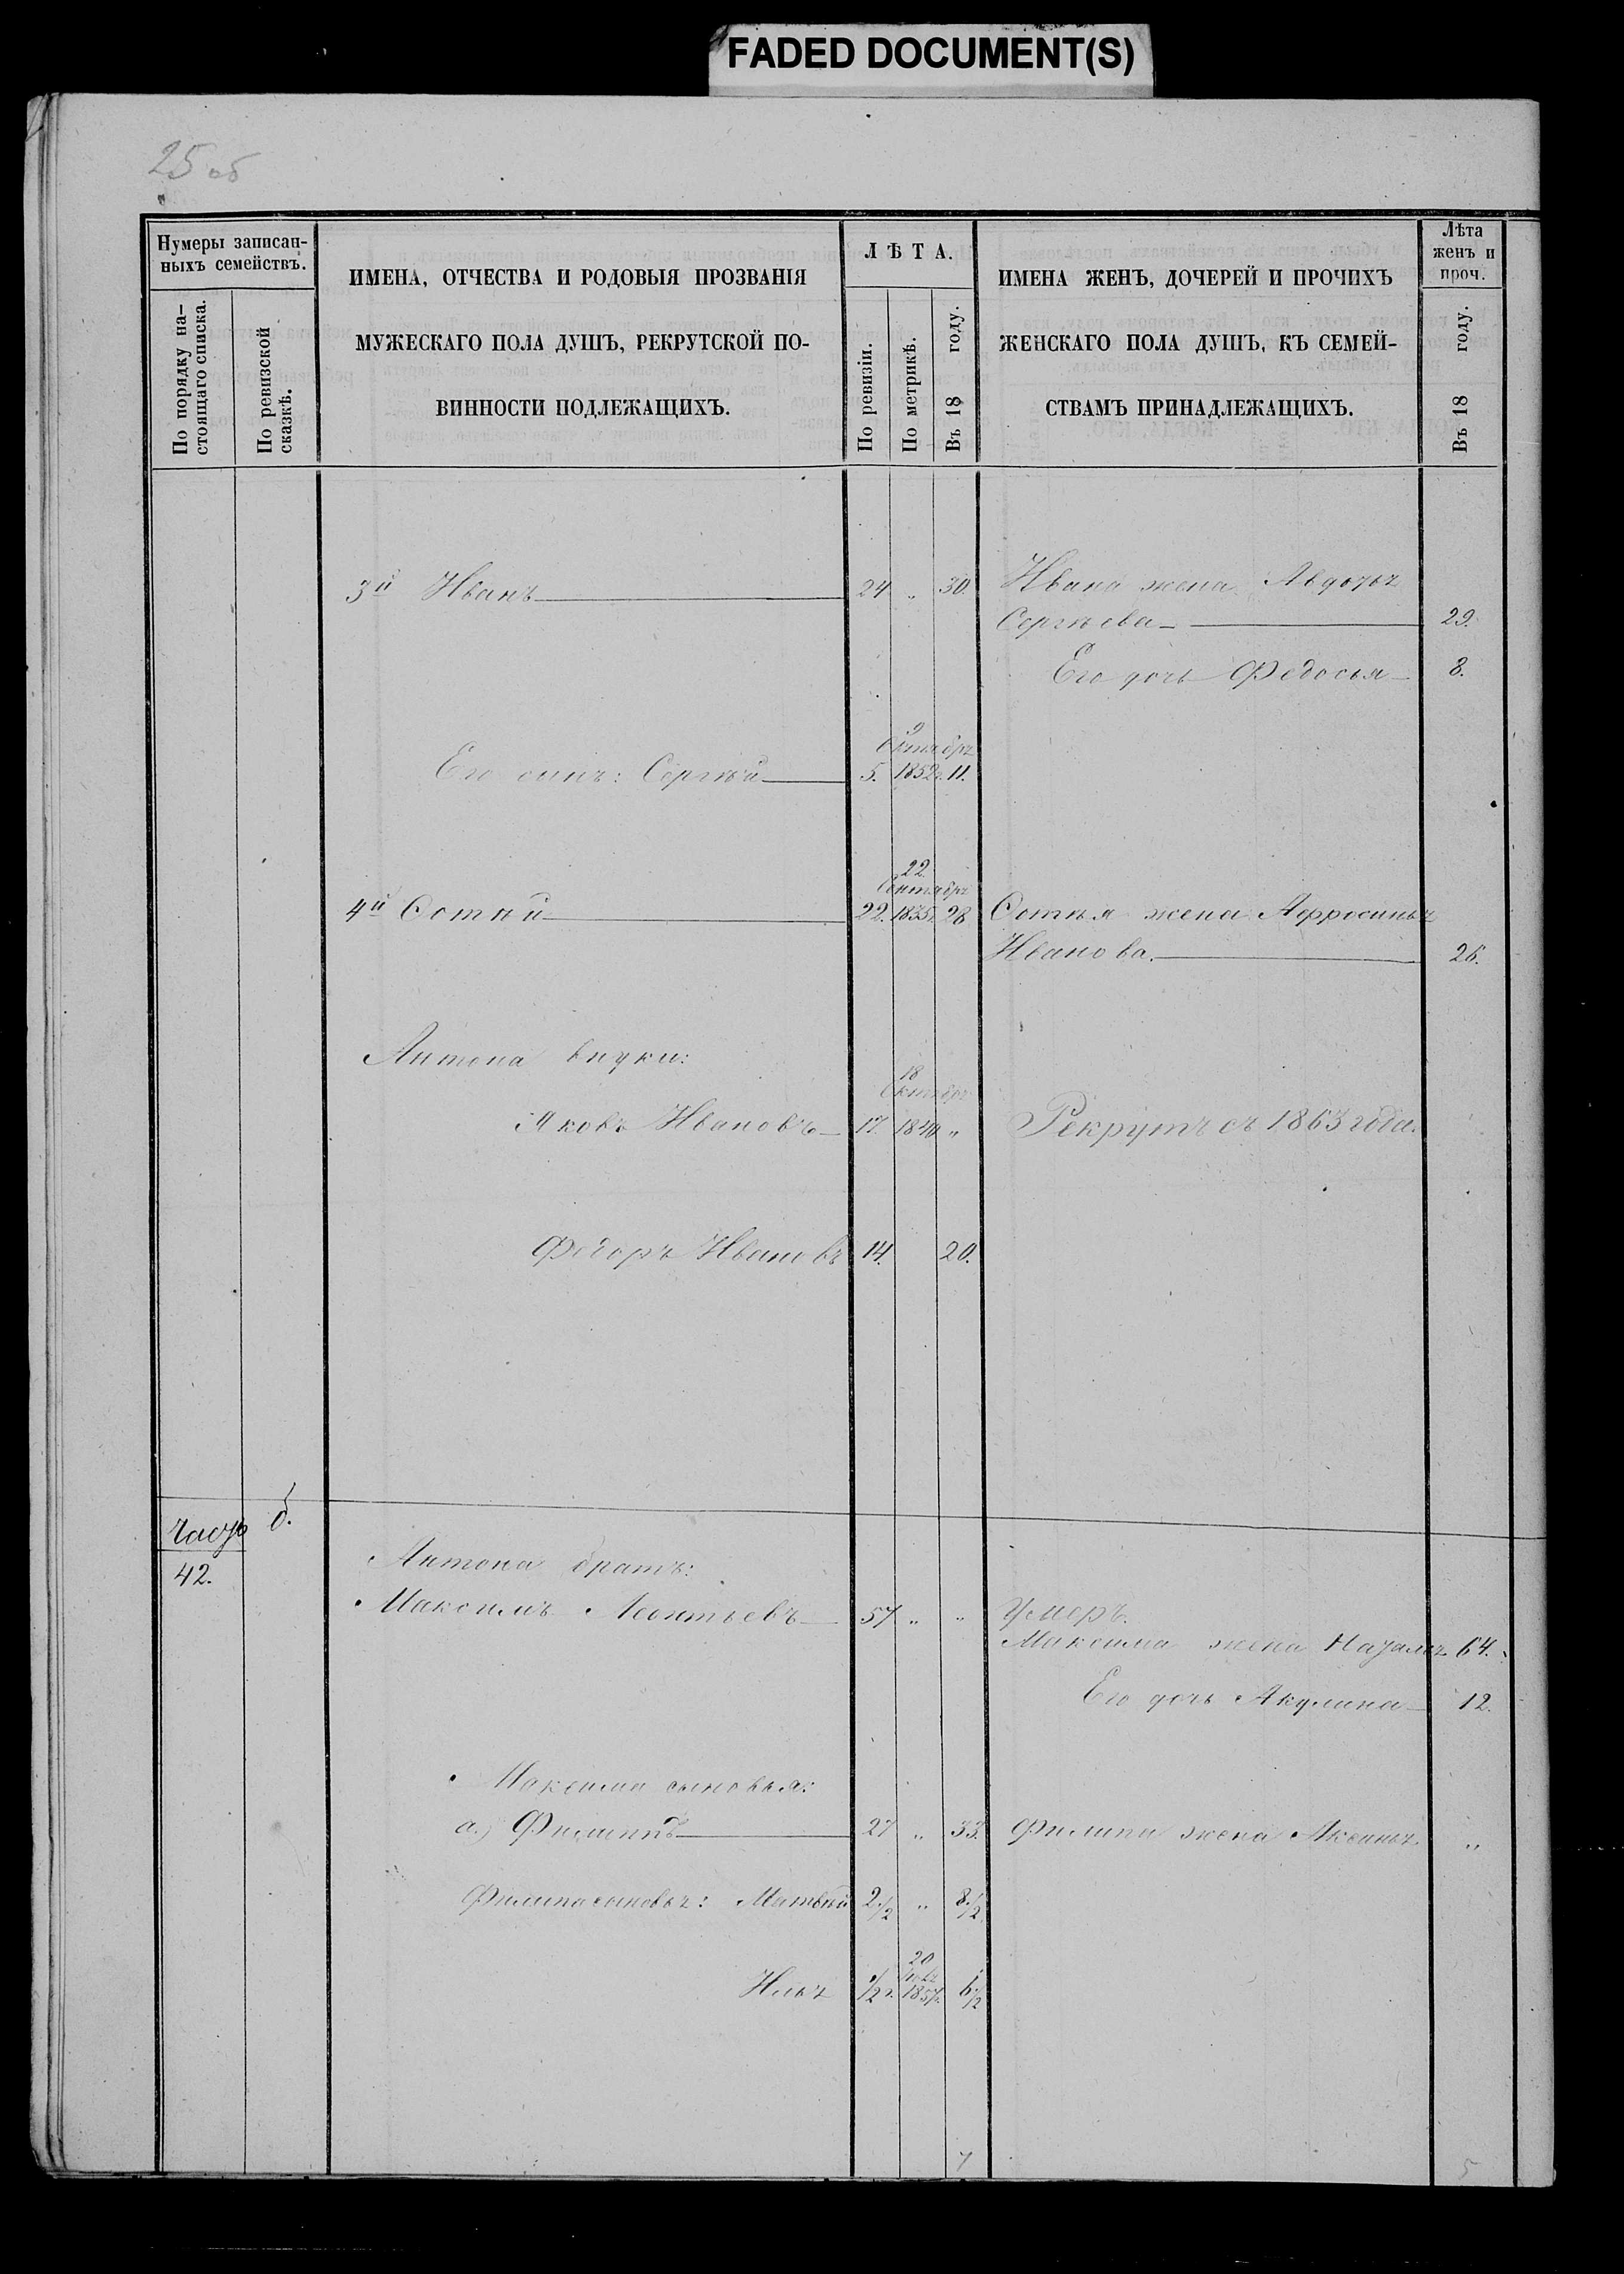 FADED DOCUMENT(S)
25 об
Нумеры записан-
ныхъ семействъ.
По порядку на-
стоящаго списка.
По ревизской
сказкѣ.
ИМЕНА, ОТЧЕСТВА И РОДОВЫЯ ПРОЗВАНІЯ
МУЖЕСКАГО ПОЛА ДУШЪ, РЕКРУТСКОЙ ПО-
ВИННОСТИ ПОДЛЕЖАЩИХЪ.
ЛѢТА.
По ревизіи.
По метрикѣ.
Въ 18 году.
ИМЕНА ЖЕНЪ, ДОЧЕРЕЙ И ПРОЧИХЪ
ЖЕНСКАГО ПОЛА ДУШЪ, КЪ СЕМЕЙ-
СТВАМЪ ПРИНАДЛЕЖАЩИХЪ.
Лѣта
женъ и
проч.
Въ 18 году.
3й Иванъ 24 „ 30. Ивана жена Авдотья
Сергѣева 29.
Его дочь Федосья 8.
9
Октября
Его сынъ: Сергѣй 5. 1852г. 11.
22
Сентября
4й Сотѣй 22. 1835г. 28 Сотѣя жена Афросинья
Иванова. 26.
Антона внуки:
18
Октября
Яковъ Ивановъ 17. 1840 „ Рекрутъ съ 1863 года.
Федоръ Ивановъ 14. 20.
Часть б.
42.
Антона братъ:
Максимъ Леонтьевъ 57 „ „ Умеръ.
Максима жена Наталья 64.
Его дочь Акулина 12.
Максима сыновья:
а.) Филиппъ 27 „ 33. Филипа жена Аксинья „
Филипа сыновья: Матвѣй 2 1/2 „ 8 1/2
20
Илья 1/2 г. 1857г. 6 1/2
7 5